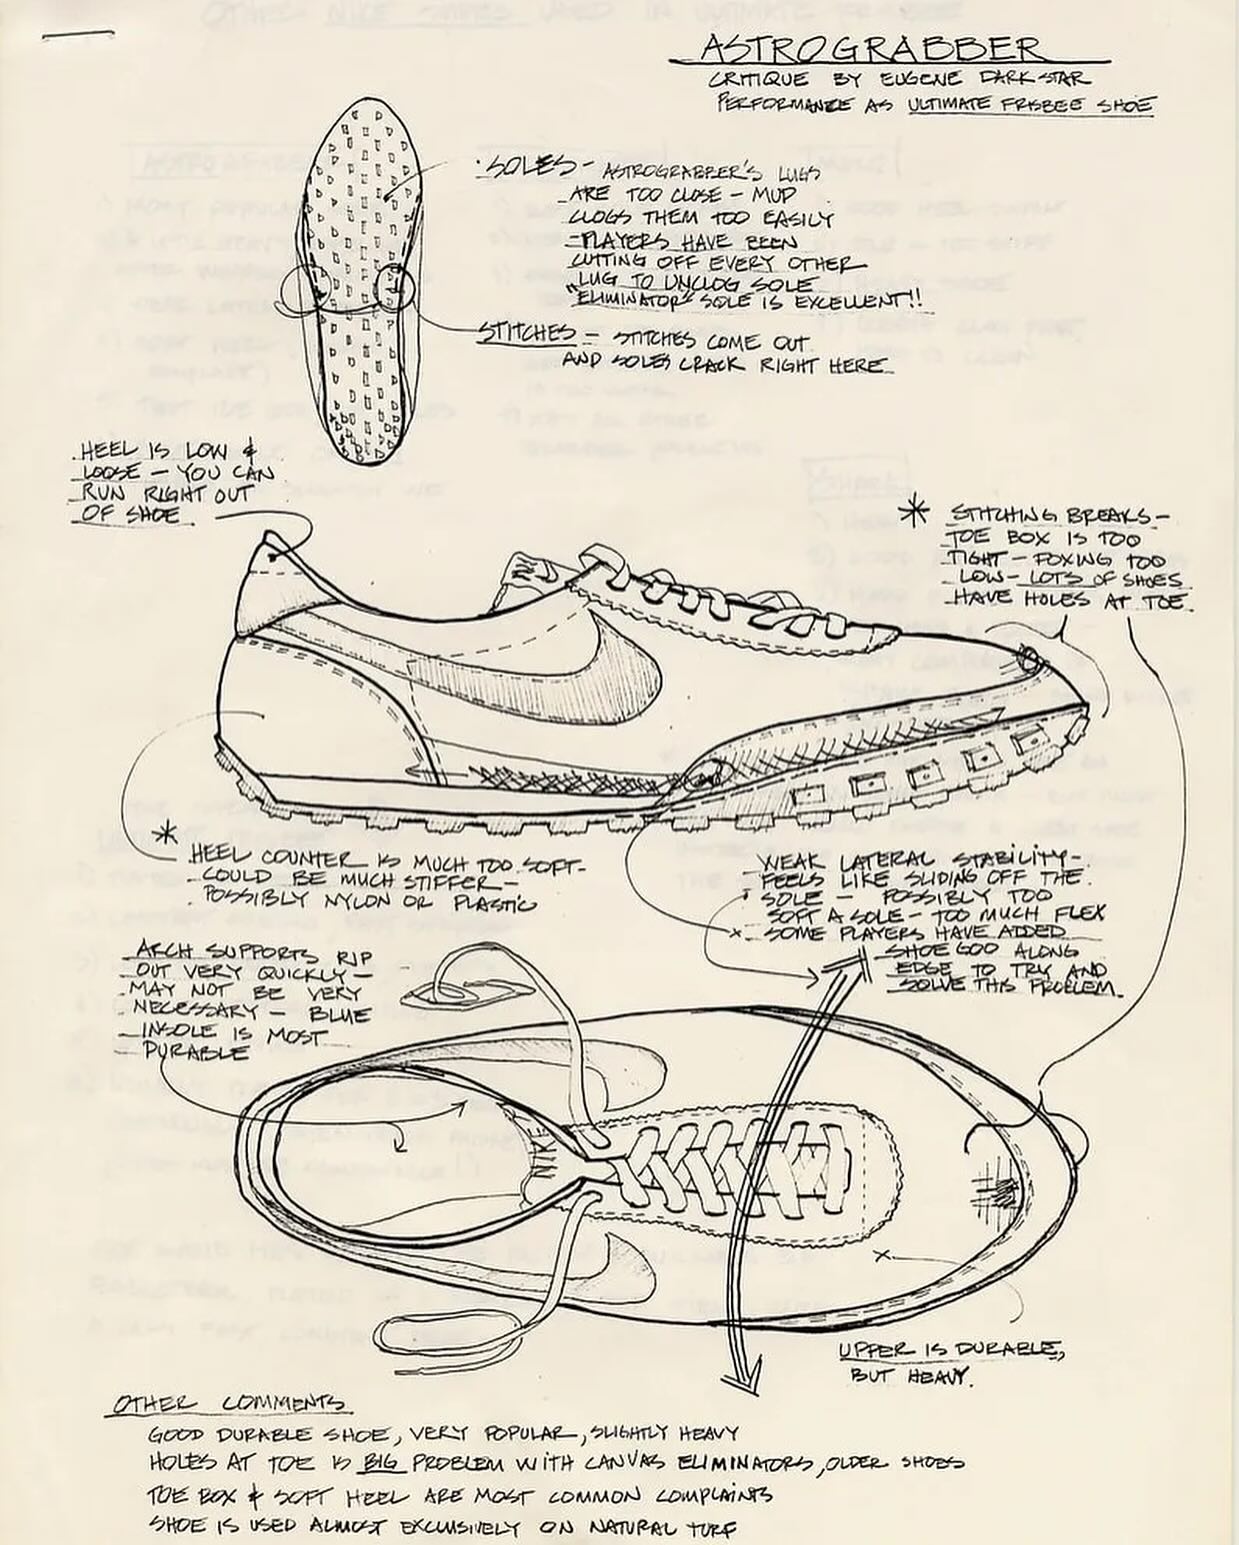 ASTROGRABBER
CRITIQUE BY EUGENE DARKSTAR
PERFORMANCE AS ULTIMATE FRISBEE SHOE
SOLES - ASTROGRABBER'S LUGS
ARE TOO CLOSE - MUD
CLOGS THEM TOO EASILY
- PLAYERS HAVE BEEN
CUTTING OFF EVERY OTHER
LUG TO UNCLOG SOLE
"ELIMINATOR" SOLE IS EXCELLENT!!
STITCHES - STITCHES COME OUT
AND SOLES CRACK RIGHT HERE
HEEL IS LOW &
LOOSE - YOU CAN
RUN RIGHT OUT
OF SHOE
* STITCHING BREAKS -
TOE BOX IS TOO
TIGHT - FOXING TOO
LOW - LOTS OF SHOES
HAVE HOLES AT TOE.
* HEEL COUNTER IS MUCH TOO SOFT -
COULD BE MUCH STIFFER -
POSSIBLY NYLON OR PLASTIC
WEAK LATERAL STABILITY -
FEELS LIKE SLIDING OFF THE
SOLE - POSSIBLY TOO
SOFT A SOLE - TOO MUCH FLEX
x SOME PLAYERS HAVE ADDED
SHOE GOO ALONG
EDGE TO TRY AND
SOLVE THIS PROBLEM.
ARCH SUPPORTS RIP
OUT VERY QUICKLY -
MAY NOT BE VERY
NECESSARY - BLUE
INSOLE IS MOST
DURABLE
NIKE
UPPER IS DURABLE,
BUT HEAVY.
OTHER COMMENTS
GOOD DURABLE SHOE, VERY POPULAR, SLIGHTLY HEAVY
HOLES AT TOE IS BIG PROBLEM WITH CANVAS ELIMINATORS, OLDER SHOES
TOE BOX & SOFT HEEL ARE MOST COMMON COMPLAINTS
SHOE IS USED ALMOST EXCLUSIVELY ON NATURAL TURF